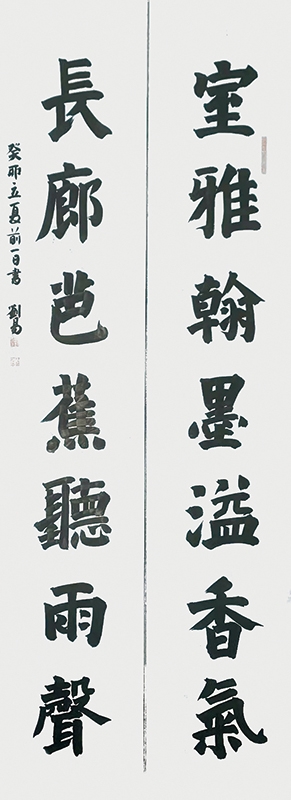 室雅翰墨溢香氣
長廊芭蕉聽雨聲
癸卯立夏前一日書 劉昜